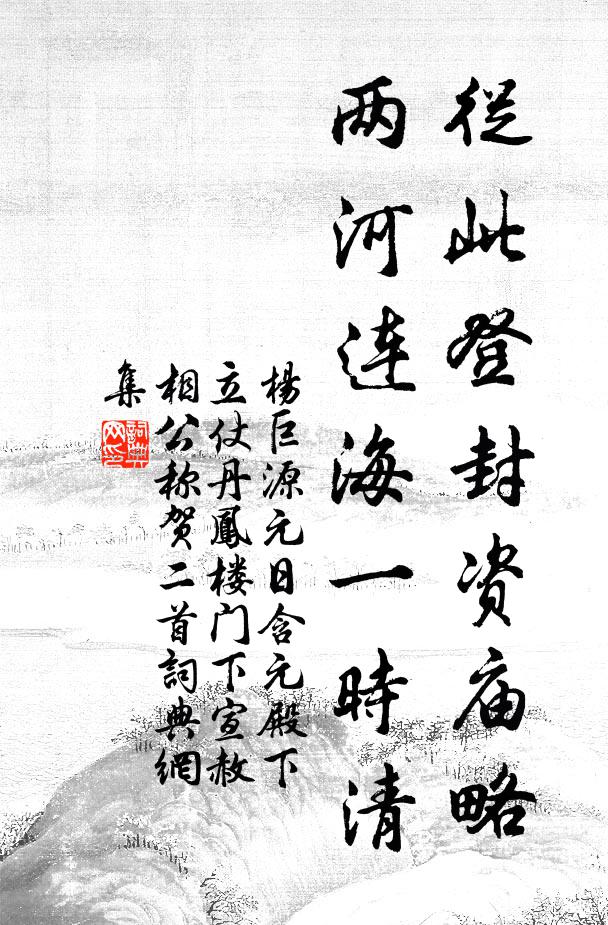 從此登封资庙略
两河连海一時清
楊巨源元日含元殿下
立仗丹鳳楼门下宣赦
相公称贺二首詞典網
集